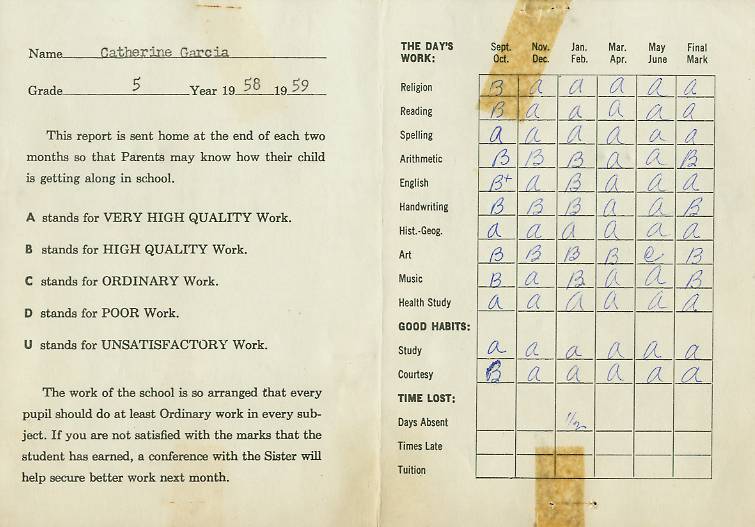 Name Catherine Garcia
Grade 5 Year 19 58 19 59
This report is sent home at the end of each two
months so that Parents may know how their child
is getting along in school.
A stands for VERY HIGH QUALITY Work.
B stands for HIGH QUALITY Work.
C stands for ORDINARY Work.
D stands for POOR Work.
U stands for UNSATISFACTORY Work.
The work of the school is so arranged that every
pupil should do at least Ordinary work in every sub-
ject. If you are not satisfied with the marks that the
student has earned, a conference with the Sister will
help secure better work next month.
THE DAY'S Sept. Nov. Jan. Mar. May Final
WORK: Oct. Dec. Feb. Apr. June Mark
Religion B a a a a a
Reading B a a a a a
Spelling a a a a a a
Arithmetic B B B a a B
English B+ a B a a a
Handwriting B B B a a B
Hist.-Geog. a a a a a a
Art B B B B C B
Music B a B a a B
Health Study a a a a a a
GOOD HABITS:
Study a a a a a a
Courtesy B a a a a a
TIME LOST:
Days Absent 1/2
Times Late
Tuition